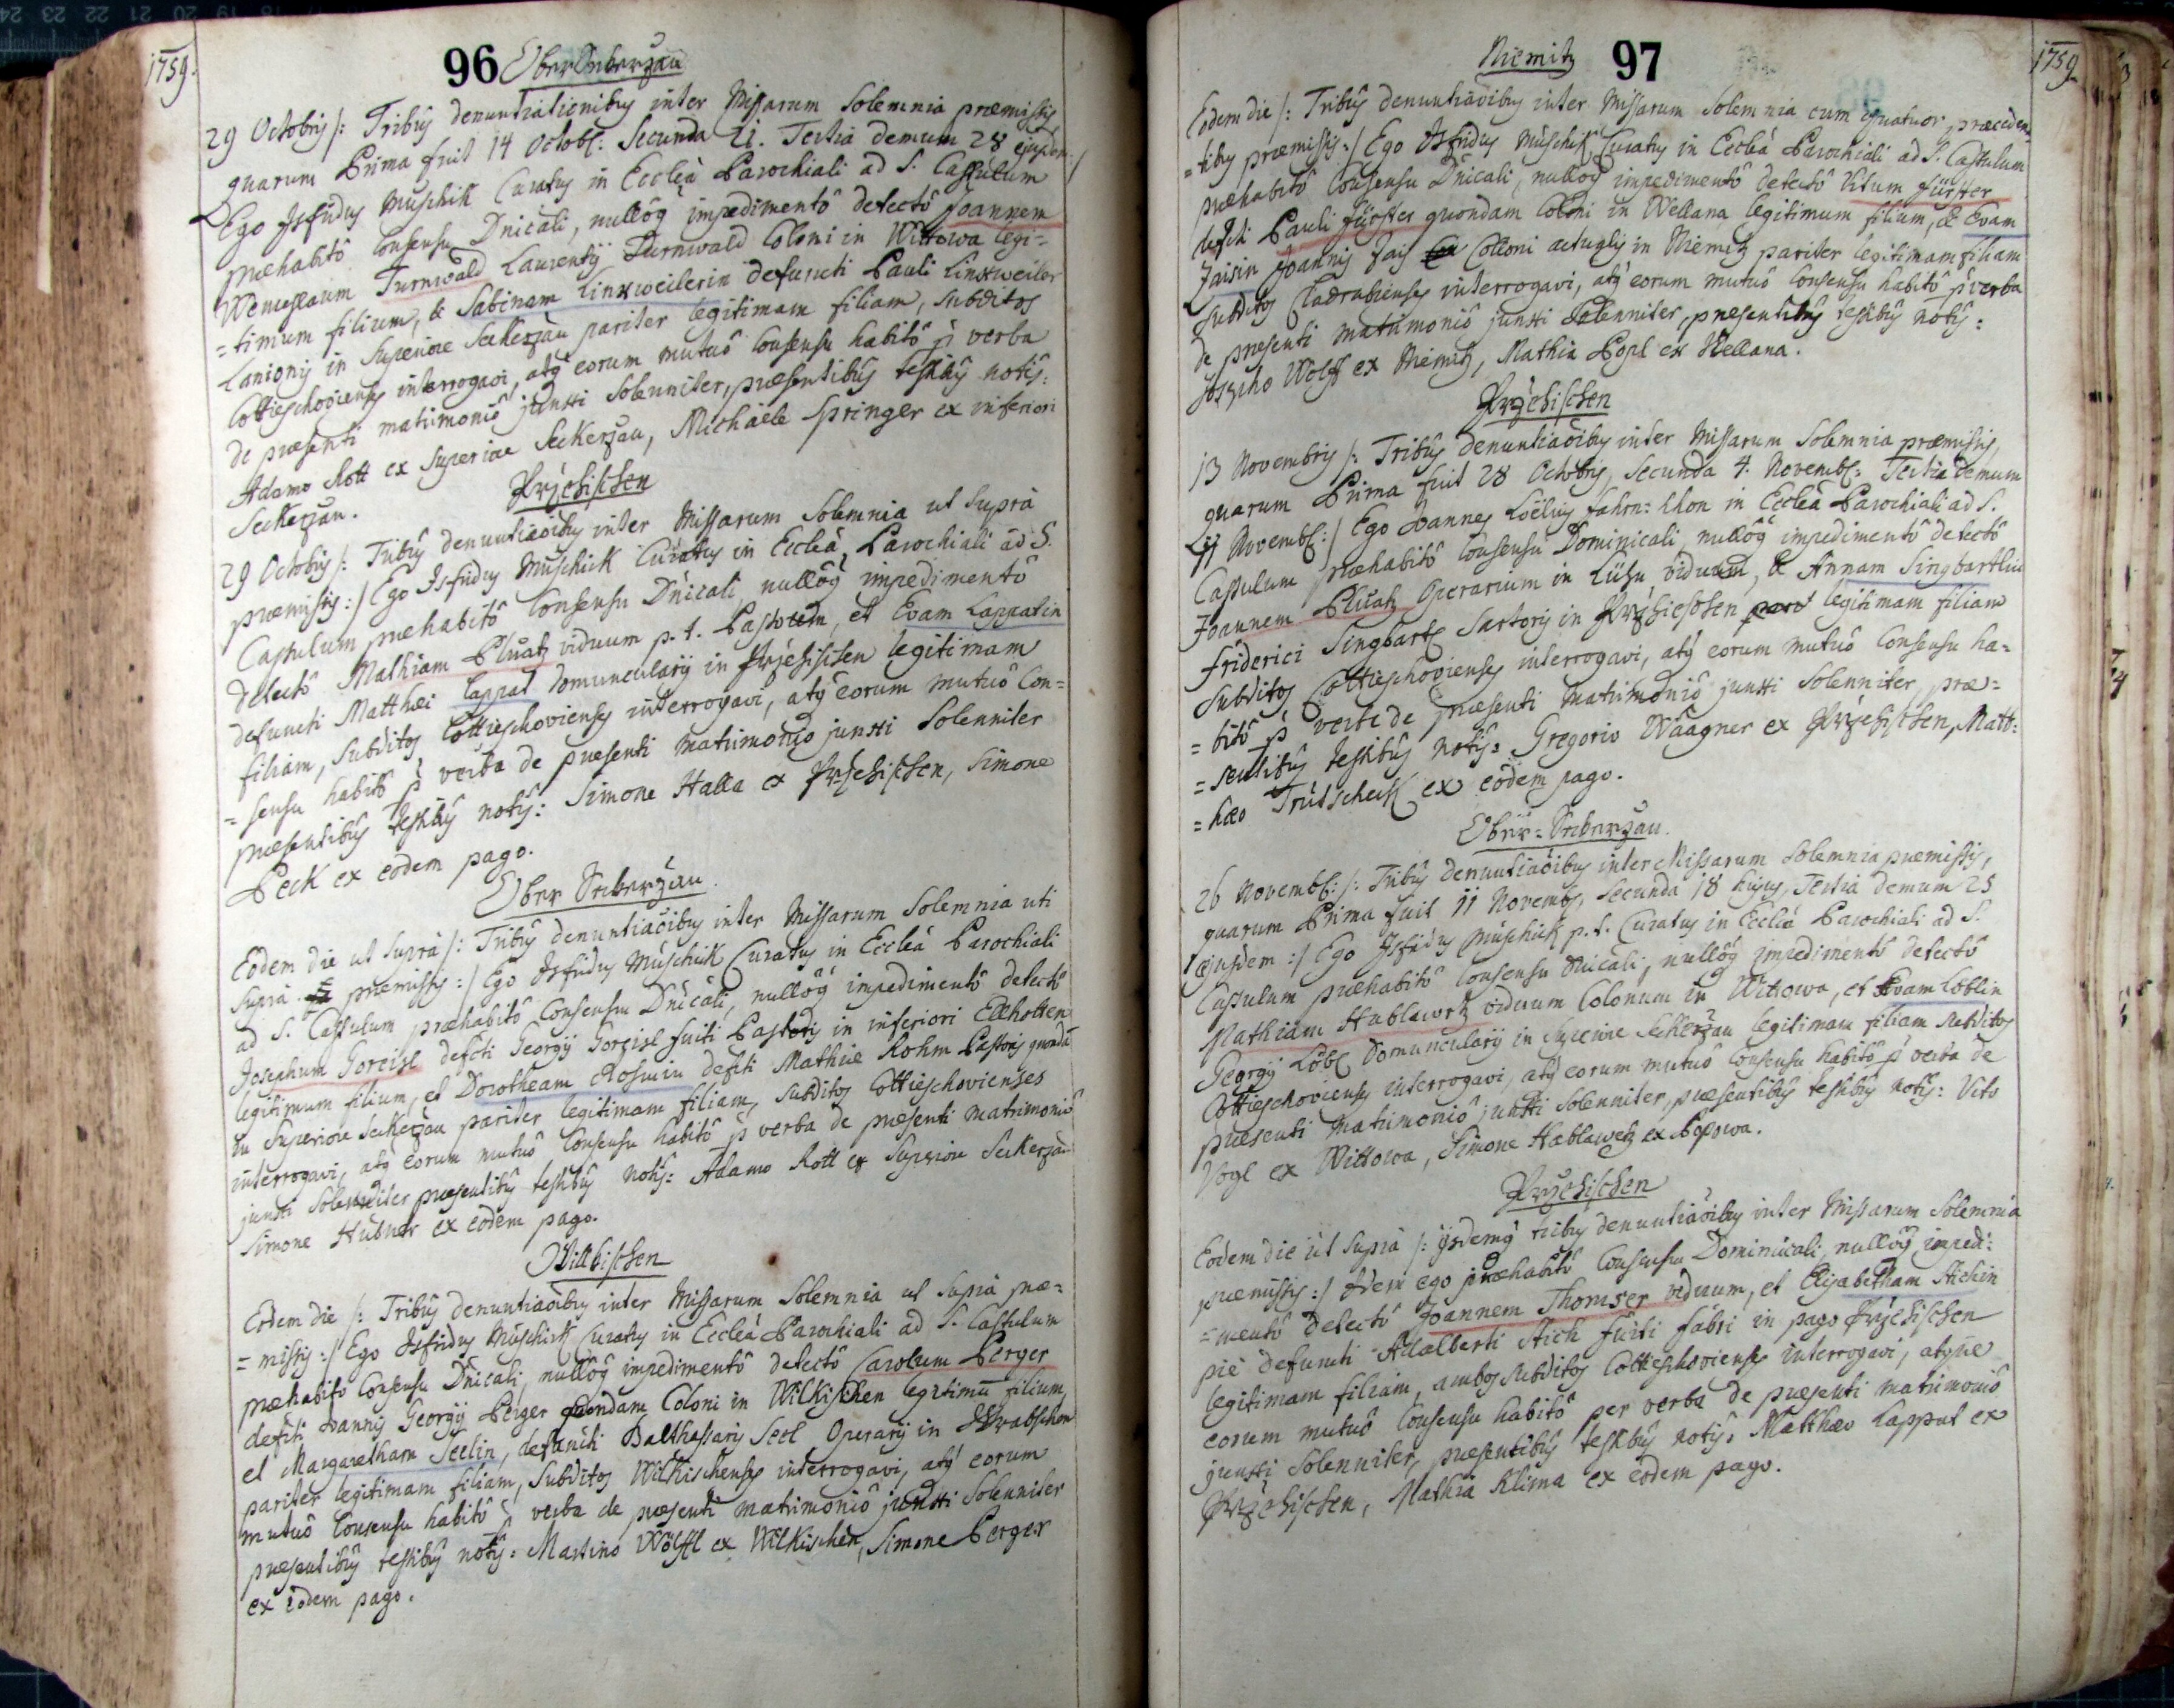 1759.
96 Ober Sekerzau
29 Octobris /: Tribus denuntiationibus inter Missarum Solemnia præmissis,
quarum Prima fuit 14 Octob: Secunda 21. Tertia demum 28 ejusdem :/
Ego Isfridus Muschik Curatus in Eccleâ Parochiali ad S. Cassulum
præhabitô Consensu Dnicali, nullôq impedimentô detectô Joannem
Wenceslaum Turnwald Laurentij Turnwald Coloni in Wittowa legi-
=timum filium, & Sabinam Linxweilerin defuncti Pauli Linxweiler
Lanionis in Superiore Sekerzau pariter legitimam filiam, Subditos
Cottieschovienses interrogavi, atq eorum mutuô Consensu habitô p verba
de præsenti matrimoniô junxi Solenniter, præsentibus testibus notis:
Adamo Rott ex Superiore Sekerzau, Michaele Springer ex inferiori
Sekerzau.
Przehischen
29 Octobris /: Tribus denuntiaoibus inter Missarum Solemnia ut Supra
præmissis :/ Ego Isfridus Muschick Curatus in Eccleâ Parochiali ad S.
Cassulum præhabitô Consensu Dnicali nullôq impedimentô
detectô Mathiam Pluatz viduum p. t. Pastorem, et Evam Lappatin
defuncti Matthæi Lappat domuncularij in Przehischen legitimam
filiam, Subditos Cottieschovienses interrogavi, atq eorum mutuô Con=
=sensu habitô p verba de præsenti matrimonio junxi Solenniter
præsentibus testibus notis: Simone Halla ex Przehischen, Simone
Peck ex eodem pago.
Ober Sekerzau.
Eodem die ut Supra /: Tribus denuntiaoibus inter Missarum Solemnia uti
Supra præmissis :/ Ego Isfridus Muschik Curatus in Eccleâ Parochiali
ad S. Cassulum præhabitô Consensu Dnicali, nullôq impedimentô detectô
Josephum Goreisl defcti Georgij Goreisl fuiti Pastoris in inferiori Elhotten
legitimum filium, et Dorotheam Rohmin defcti Mathiæ Rohm Pastoris quondā
in Superiore Sekerzau pariter legitimam filiam, Subditos Cottieschovienses
interrogavi, atq eorum mutuô Consensu habitô p verba de præsenti matrimoniô
junxi Solenniter præsentibus testibus notis: Adamo Rott ex Superiore Sekerzau
Simone Hübner ex eodem pago.
Willkischen
Eodem die /: Tribus denuntiaoibus inter Missarum Solemnia ut Supra præ=
=missis :/ Ego Isfridus Muschik Curatus in Eccleâ Parochiali ad S. Cassulum
præhabitô Consensu Dnicali, nullôq impedimentô detectô Carolum Berger
defcti Joannis Georgij Berger quondam Coloni in Wilkischen legitimū filium,
et Margaretham Seelin, defuncti Balthassaris Seel Operarij in Wrabschen
pariter legitimam filiam, Subditos Wilkischenses interrogavi, atq eorum
mutuô Consensu habitô p verba de præsenti matrimoniô junxi Solenniter
præsentibus testibus notis: Martino Wölfl ex Wilkischen, Simone Berger
ex eodem pago.
Niemitz 97
1759
Eodem die /: Tribus denuntiaoibus inter Missarum Solemnia cum quatuor præceden=
=tibus præmissis :/ Ego Isfridus Muschik Curatus in Eccleâ Parochiali ad S. Cassulum
præhabitô Consensu Dnicali, nullôq impedimentô detectô Vitum Fürster
defcti Pauli Fürster quondam Coloni in Wellana legitimum filium, & Evam
Zaisin Joannis Zais Colloni actualis in Niemitz pariter legitimam filiam
Subditos Cladrubienses interrogavi, atq eorum mutuô Consensu habitô p verba
de præsenti matrimoniô junxi Solenniter, præsentibus testibus notis:
Josepho Wolff ex Niemitz, Mathia Popl ex Wellana.
Przehischen
13 Novembris /: Tribus denuntiaoibus inter Missarum Solemnia præmissis,
quarum Prima fuit 28 Octobris, Secunda 4. Novemb: Tertia demum
11 Novemb: :/ Ego Joannes Loelius in Eccleâ Parochiali ad S.
Cassulum præhabitô Consensu Dominicali, nullôq impedimentô detectô
Joannem Pluatz Operarium in viduum, & Annam Singbartlin
Friderici Singbartl Sartoris in Przehischen legitimam filiam
Subditos Cottieschovienses interrogavi, atq eorum mutuô Consensu ha=
=bitô p verba de præsenti matrimoniô junxi Solenniter, præ=
=sentibus testibus notis: Gregorio Waagner ex Przehischen, Matt:
=hæo Trutscheck ex eodem pago.
Ober=Sekerzau.
26 Novemb: /: Tribus denuntiaoibus inter Missarum Solemnia præmissis,
quarum Prima fuit 11 Novemb, Secunda 18 hujus, Tertia demum 25
ejusdem :/ Ego Isfridus Muschik p. t. Curatus in Eccleâ Parochiali ad S.
Cassulum præhabitô Consensu Dnicali, nullôq impedimentô detectô
Mathiam Hablawetz viduum Colonum in Wittowa, et Evam Löblin
Georgij Löbl Domuncularij in Superiore Sekerzau legitimam filiam Subditos
Cottieschovienses interrogavi, atq eorum mutuô Consensu habitô p verba de
præsenti matrimoniô junxi Solenniter, præsentibus testibus notis: Vito
Vogl ex Wittowa, Simone Hablawetz ex Popowa.
Przehischen
Eodem die ut Supra /: ijsdemq tribus denuntiaoibus inter Missarum Solemnia
præmissis :/ Idem ego præhabitô Consensu Dominicali, nullôq impedi:
=mentô detectô Joannem Thomser viduum, et Elisabetham Aichin
pie defuncti Adalberti Aich fuiti fabri in pago Przehischen
legitimam filiam, ambos Subditos Cottieschovienses interrogavi, atque
eorum mutuô Consensu habitô per verba de præsenti matrimoniô
junxi Solenniter, præsentibus testibus notis: Matthæo Lappat ex
Przehischen, Mathia Klima ex eodem pago.